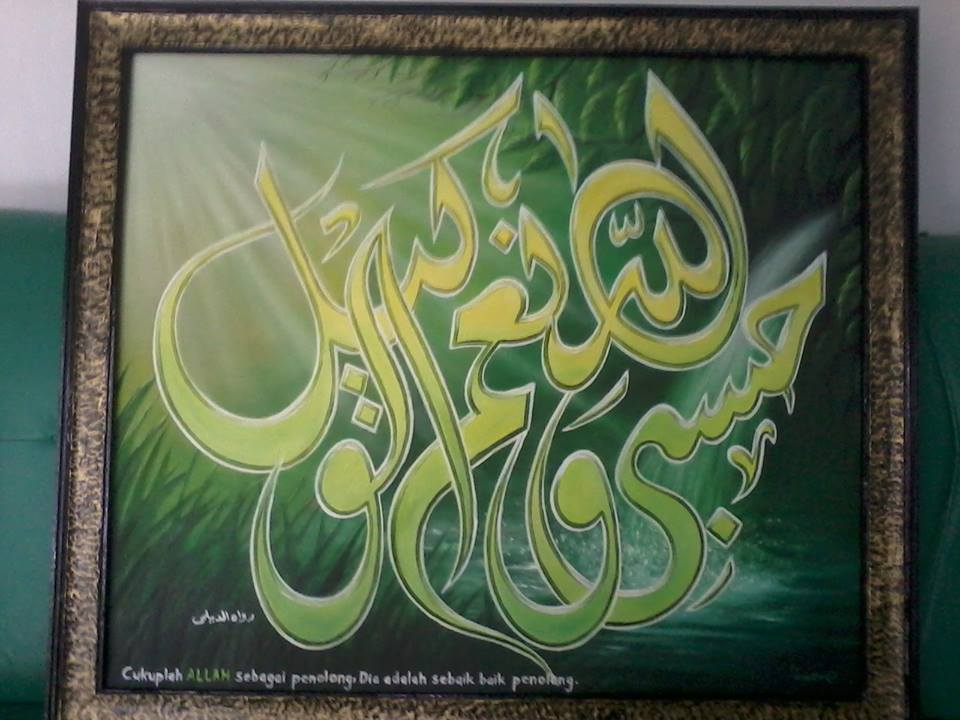 حسبي الله ونعم الوكيل
رواه الديلمى
Cukuplah ALLAH sebagai penolong, Dia adalah sebaik baik penolong.